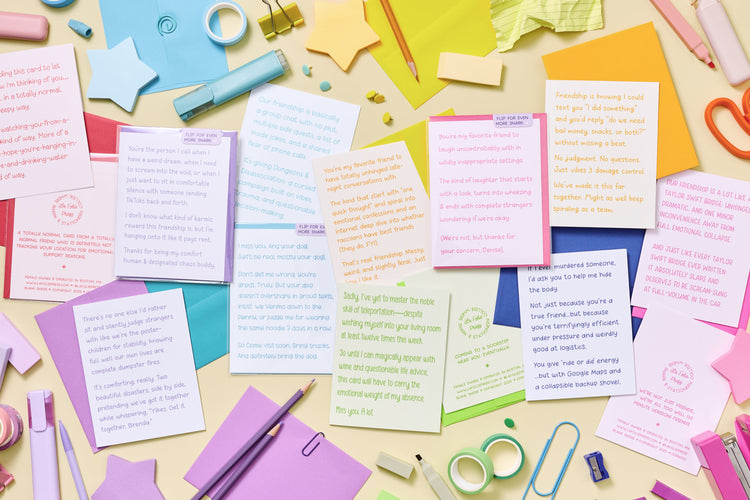 ding this card to list
ow I'm thinking of you...
in a totally normal,
eepy way.
watching-you-from-a-
kind of way. More of a
hope-you're-hanging-in-
e-and-drinking-water
A TOTALLY NORMAL CARD FROM A TOTALLY
NORMAL FRIEND WHO IS DEFINITELY NOT
TRACKING YOUR LOCATION FOR EMOTIONAL
SUPPORT REASONS
FLIP FOR EVEN
MORE SNARK
You're the person I call when I
have a weird dream, when I need
to scream into the void, or when I
just want to sit in comfortable
silence with someone sending
TikToks back and forth.
I don't know what kind of karmic
reward this friendship is, but I'm
hanging onto it like it pays rent.
Thanks for being my comfort
human & designated chaos buddy.
Our friendship is basically
a group chat with no plot,
multiple side quests, a lot of
inside jokes, and a shared
fear of phone calls.
It's giving Dungeons &
campaign built on vibes,
FLIP FOR EVEN
MORE SNARK
I miss you. And your dog.
Just be real, mostly your dog.
Don't get me wrong, you're
great, truly. But your dog
doesn't overshare in group texts,
the same hoodie 3 days in a row.
So Come visit soon. Bring snacks.
And definitely bring the dog.
You're my favorite friend to
have totally unhinged late-
night conversations with.
The kind that start with "one
quick thought" and spiral into
emotional confessions and an
internet deep dive on whether
raccoons have best friends
(they do. FYI)
That's real friendship. Messy,
weird, and slightly feral. Just
FLIP FOR EVEN
MORE SNARK
You're my favorite friend to laugh
uncontrollably with in wildly
inappropriate settings.
The kind of laughter that starts
with a look, turns into wheezing
& ends with complete strangers
wondering if we're okay.
(We're not, but thanks for
your concern, Denise).
Friendship is knowing I could
text you "I did something"
and you'd reply "do we need
bail money, snacks, or both?"
without missing a beat.
No judgment. No questions.
Just vibes & damage control.
We've made it this far
together. Might as well keep
spiraling as a team.
OUR FRIENDSHIP IS A LOT LIKE A
TAYLOR SWIFT BRIDGE: UNHINGED,
DRAMATIC, AND ONE MINOR
INCONVENIENCE AWAY FROM
FULL EMOTIONAL COLLAPSE.
AND JUST LIKE EVERY TAYLOR
SWIFT BRIDGE EVER WRITTEN
IT ABSOLUTELY SLAPS AND
DESERVES TO BE SCREAM-SUNG
AT FULL-VOLUME IN THE CAR.
There's no one else I'd rather
sit and silently judge strangers
with like we're the poster-
children for stability, knowing
full well our own lives are
complete dumpster fires.
It's comforting, really. Two
beautiful disasters, side by side,
pretending we've got it together
while whispering, "Yikes. Get it
together, Brenda."
Sadly, I've yet to master the noble
skill of teleportation—despite
wishing myself into your living room
at least twelve times this week.
So until I can magically appear with
wine and questionable life advice,
this card will have to carry the
emotional weight of my absence.
Miss you. A lot.
COMING TO A DOORSTEP
NEAR YOU, EVENTUALLY.
If I ever murdered someone,
I'd ask you to help me hide
the body.
Not just because you're a
true friend...but because
you're terrifyingly efficient
under pressure and weirdly
good at logistics.
You give 'ride or die' energy
...but with Google Maps and
a collapsible backup shovel.
WE'RE NOT JUST FRIENDS,
WE'RE ALL TOO WELL (10
MINUTE VERSION) FRIENDS